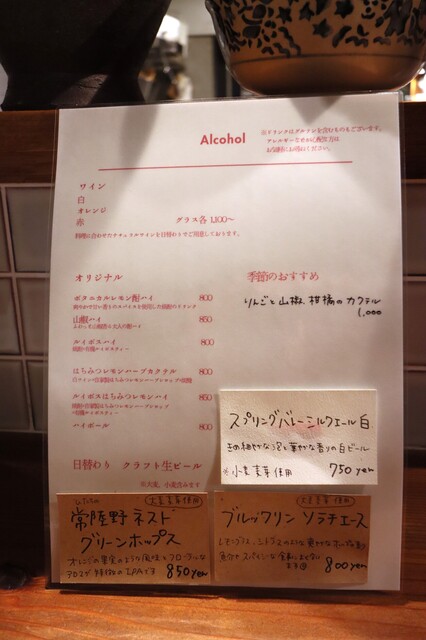 Alcohol
※ドリンクはグルテンを含むものもございます。
アレルギーなどのご配慮は
お気軽にお尋ねください。
ワイン
白
オレンジ
赤
グラス各 1,100〜
料理に合わせたナチュラルワインを日替わりでご用意しております。
オリジナル
季節のおすすめ
りんごと山椒、柑橘のカクテル
1,000
ボタニカルレモン酎ハイ 800
山椒ハイ 850
ルイボスハイ 800
はちみつレモンハーブカクテル 800
ルイボスはちみつレモンハイ 850
ハイボール 800
スプリングバレーシルクエール白
きめ細やかな泡と華やかな香りの白ビール
※小麦麦芽使用
750yen
日替わり クラフト生ビール
※大麦、小麦含みます
ひたちの
大麦麦芽使用
常陸野ネスト
グリーンホップス
オレンジの果実のような風味とフローラルな
アロマが特徴のIPAです
850yen
大麦麦芽使用
ブルックリン ソラチエース
800yen